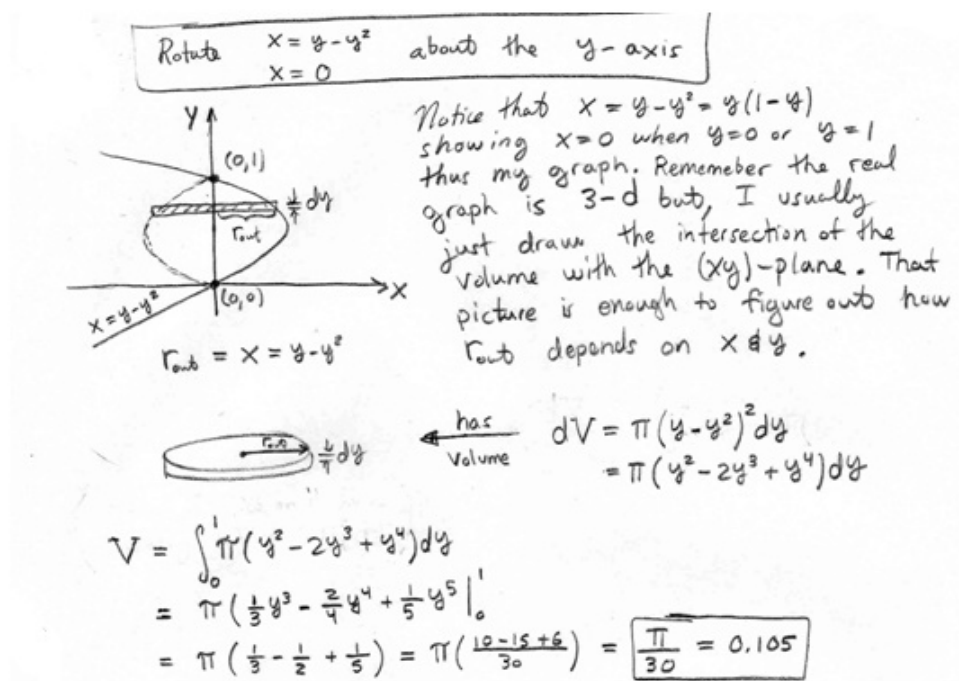 Rotute x = y - y² about the y-axis
x = 0
Notice that x = y - y² = y(1-y)
showing x=0 when y=0 or y=1
thus my graph. Rememeber the real
graph is 3-d but, I usually
just draw the intersection of the
volume with the (xy)-plane. That
picture is enough to figure out how
r_out depends on x & y.
y
(0,1)
dy
r_out
x
(0,0)
x = y - y²
r_out = x = y - y²
r_out
dy
has
volume
dV = π(y - y²)²dy
= π(y² - 2y³ + y⁴)dy
V = ∫₀¹ π(y² - 2y³ + y⁴)dy
= π(⅓y³ - 2/4 y⁴ + 1/5 y⁵ |₀¹
= π(1/3 - 1/2 + 1/5) = π((10-15+6)/30) = π/30 = 0.105